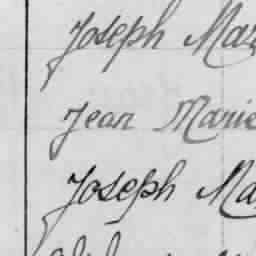 Joseph Mar
Jean Marie
Joseph Ma